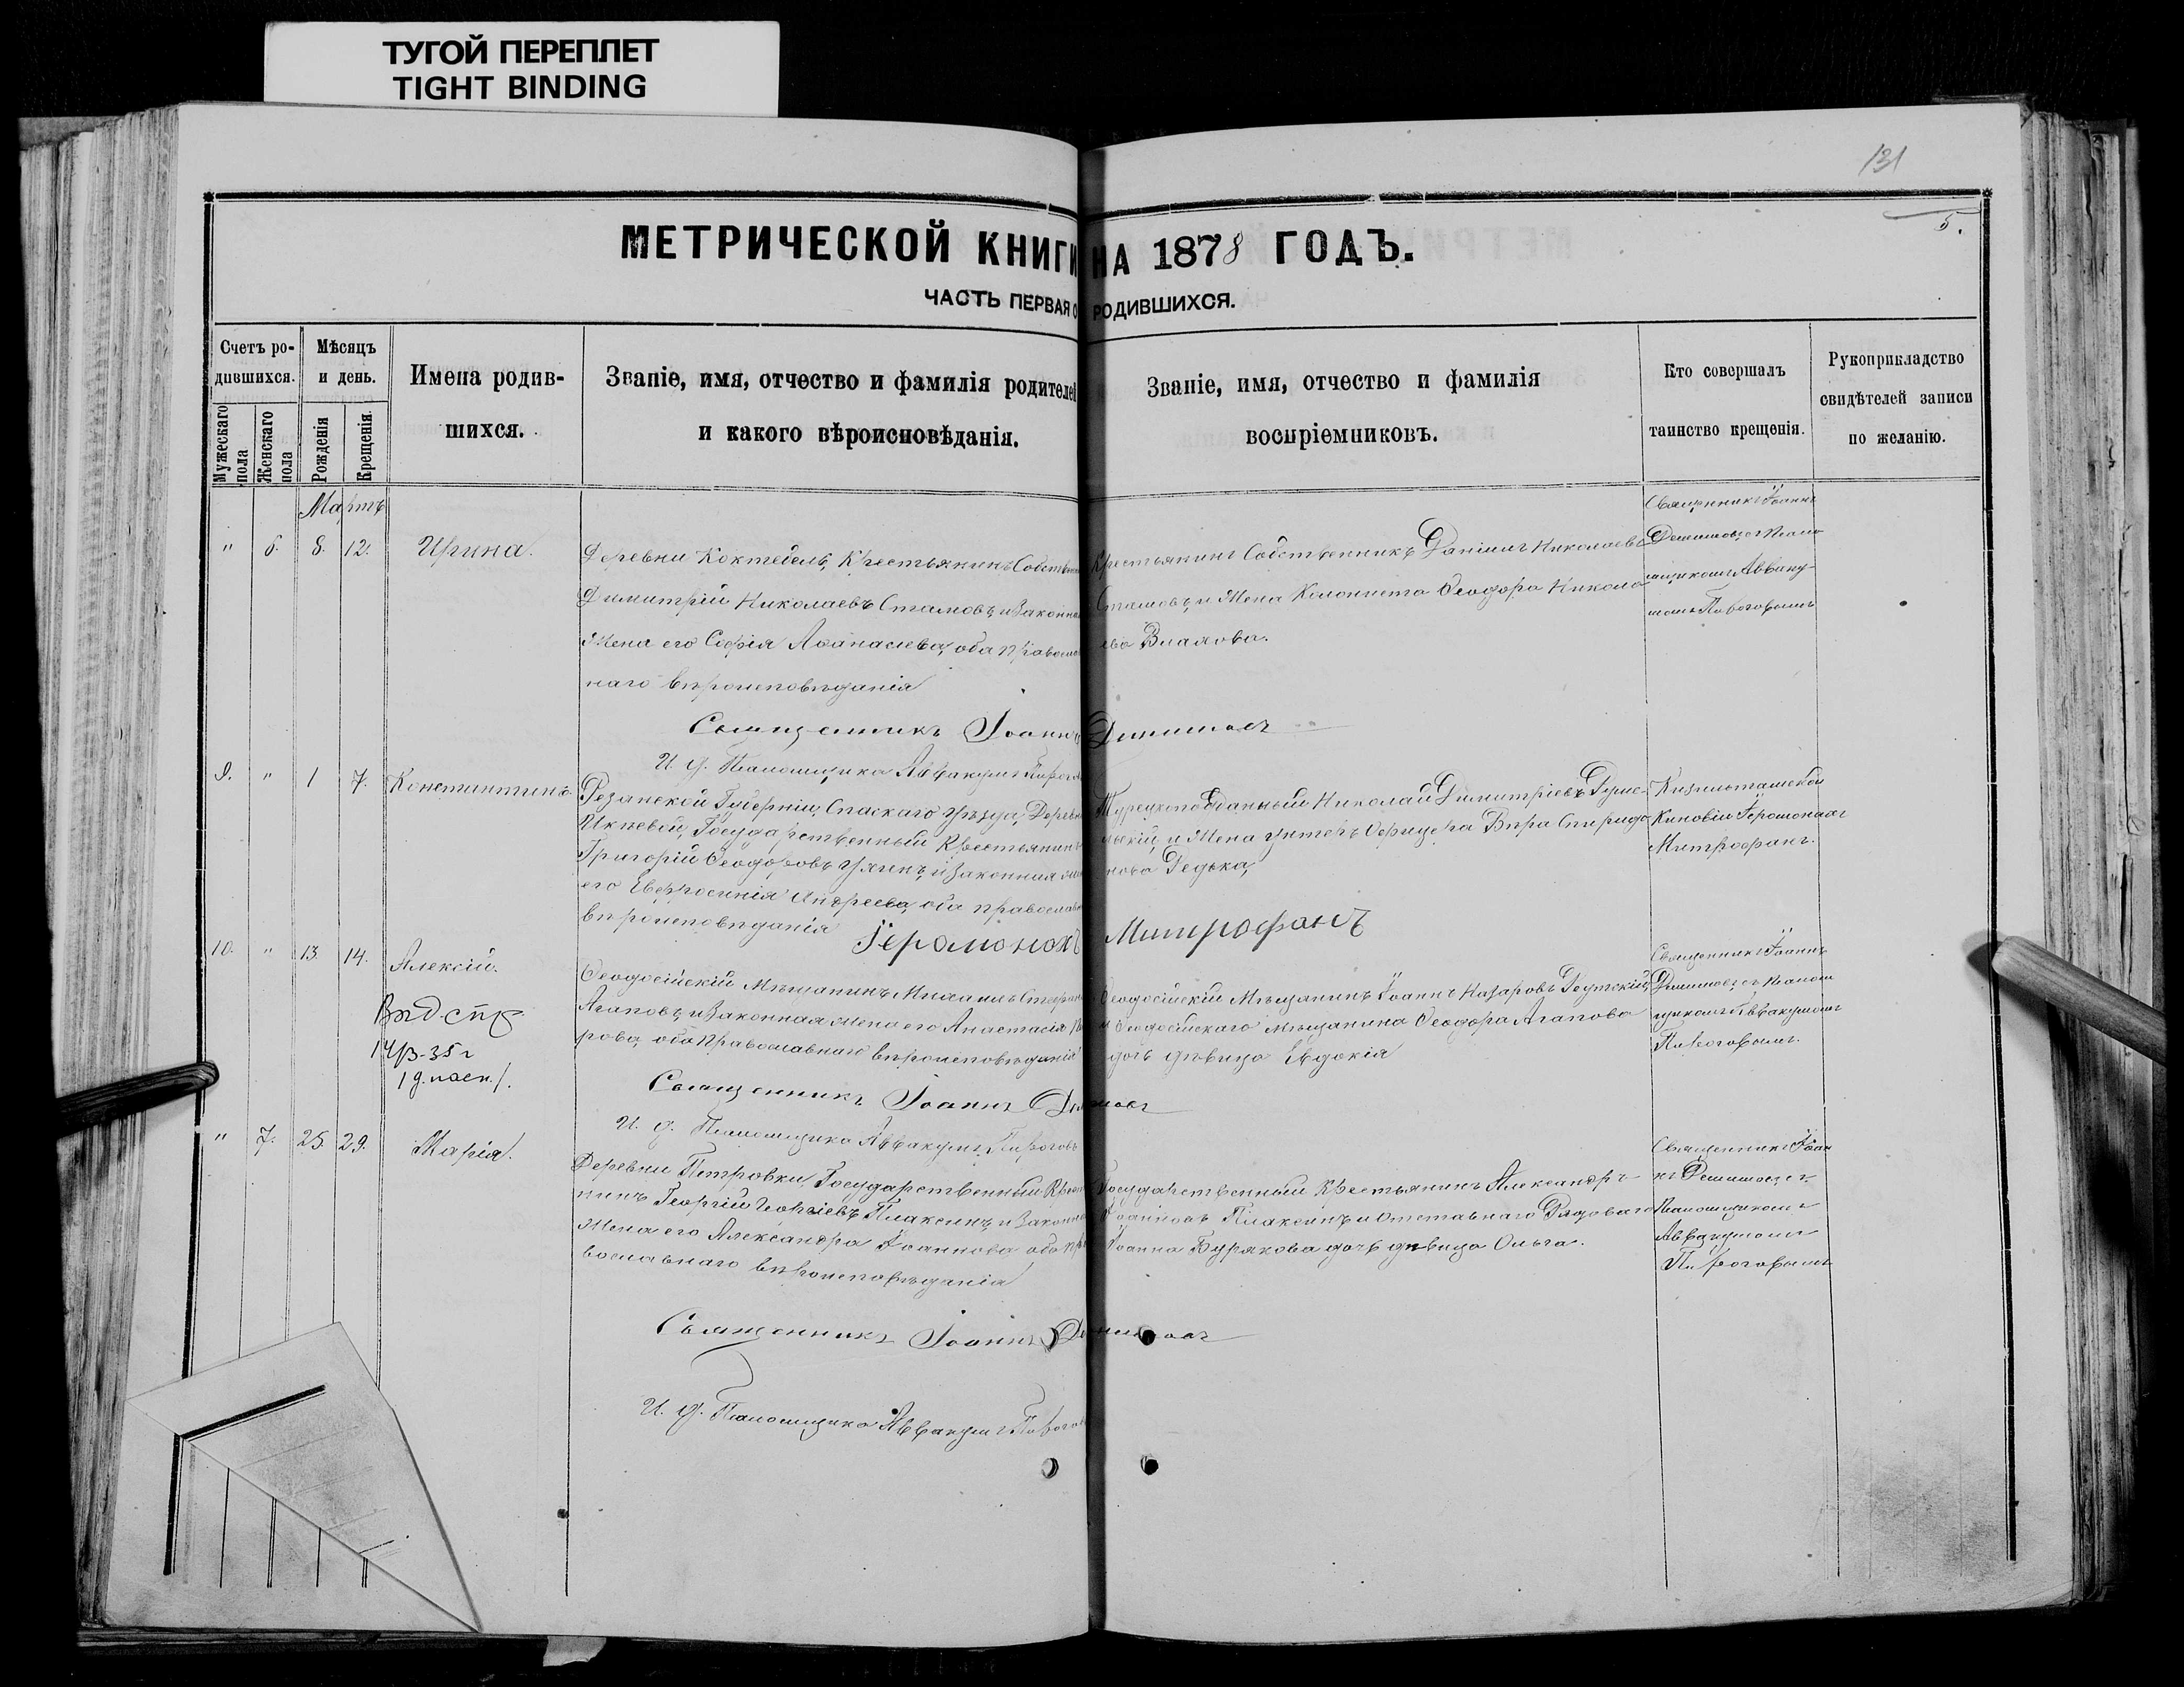 ТУГОЙ ПЕРЕПЛЕТ
TIGHT BINDING
131
5.
МЕТРИЧЕСКОЙ КНИГИ НА 1878 ГОДЪ.
ЧАСТЬ ПЕРВАЯ О РОДИВШИХСЯ.
Счетъ ро-
дившихся.
Мужескаго пола
Женскаго пола
Мѣсяцъ
и день.
Рожденія
Крещенія.
Имена родив-
шихся.
Званіе, имя, отчество и фамилія родителей
и какого вѣроисповѣданія.
Званіе, имя, отчество и фамилія
воспріемниковъ.
Кто совершалъ
таинство крещенія.
Рукоприкладство
свидѣтелей записи
по желанію.
Мартъ
" 6. 8. 12. Ирина.
Деревни Коктебель, Крестьянинъ Собств
Димитрій Николаевъ Стамовъ, и Законная
Жена его Софія Аѳанасіева, оба Правосла
наго вѣроисповѣданія
Крестьянинъ Собственникъ Даніилъ Николаевъ
Стамовъ, и Жена Колониста Ѳеодора Никола
ева Влахова.
Священникъ Іоаннъ
мщикомъ Авваку-
момъ Пироговымъ
Священникъ Іоаннъ
И. д. Паломщика Аввакумъ Пирог
9. " 1 7. Константинъ.
Резанской Губерніи, Спаскаго уѣзда, Деревни
Государственный Крестьянинъ
Григорій Ѳеодоровъ и Законная
его Евфросинія Андреева, оба православн
вѣроисповѣданія
Турецкоподданный Николай Димитріевъ
и Жена Унтеръ Офицера Вѣра Спиридо
нова Дедька,
Кизильташской
Киновіи Іеромонахъ
Митрофанъ.
Іеромонахъ Митрофанъ
10. " 13. 14. Алексій.
14/3-35 г
Ѳеодосійскій Мѣщанинъ Михаилъ Стефан
Агаповъ, и Законная жена его Анастасія
рова, оба Православнаго вѣроисповѣданія
Ѳеодосійскій Мѣщанинъ Іоаннъ Назаровъ
и Ѳеодосійскаго мѣщанина Ѳеодора Агапова
дочь дѣвица Евдокія
Священникъ Іоаннъ
щикомъ Аввакумомъ
Пироговымъ.
Священникъ Іоаннъ
И. д. Паломщика Аввакумъ Пироговъ
" 7. 25. 29. Марія.
Деревни Петровки, Государственный Крестья
нинъ Георгій Георгіевъ Плаксинъ, и Законная
Жена его Александра Іоаннова оба Пра
вославнаго вѣроисповѣданія
Государственный Крестьянинъ Александръ
Іоанновъ Плаксинъ и отставнаго Рядоваго
Іоанна Бурякова дочь дѣвица Ольга.
Священникъ Іоан
Паломщикомъ
Аввакумомъ
Пироговымъ
Священникъ Іоаннъ
И. д. Паломщика Аввакумъ Пирогов